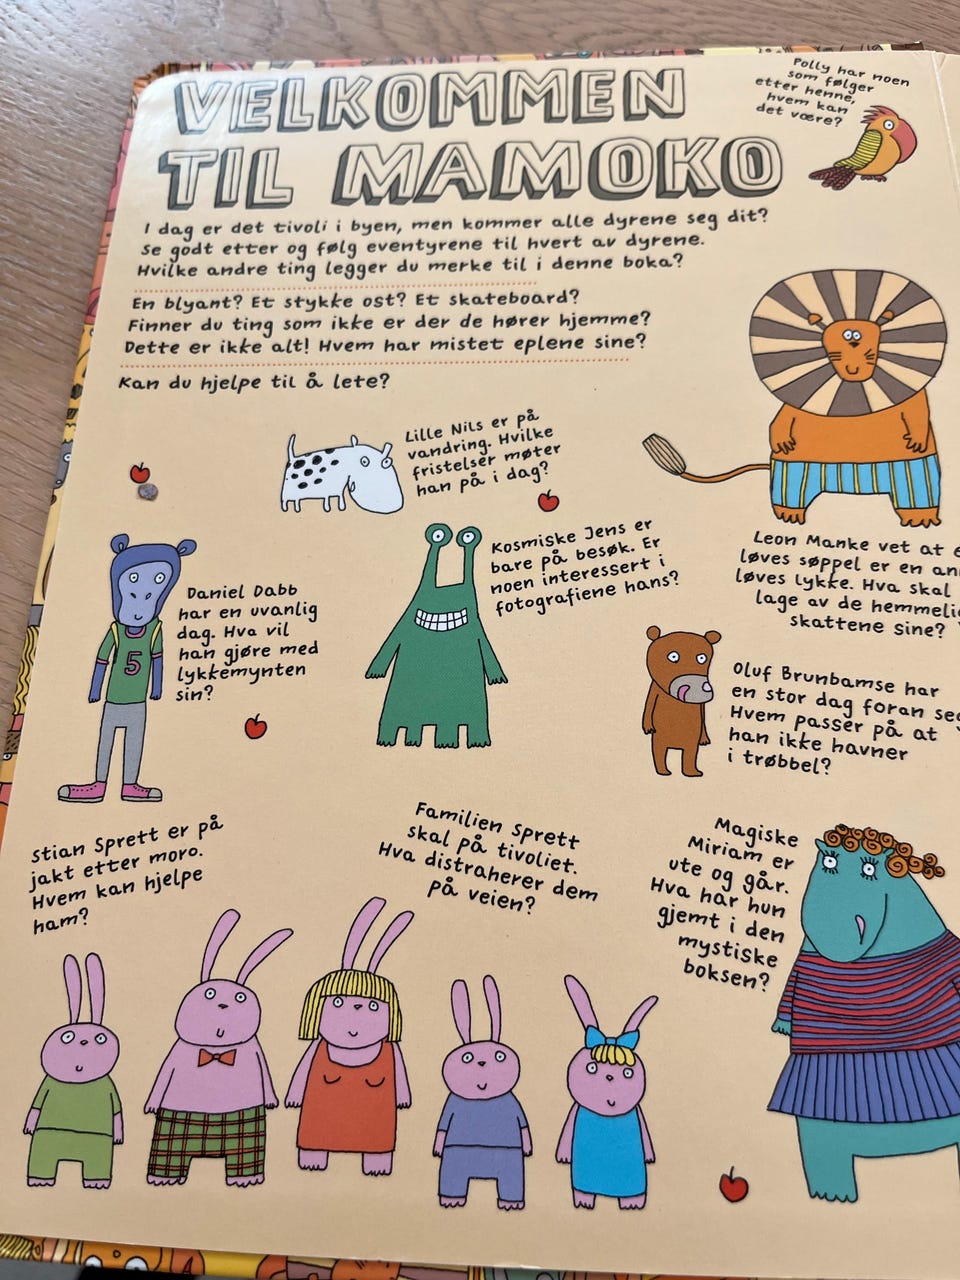 VELKOMMEN
TIL MAMOKO
Polly har noen
som følger
etter henne,
hvem kan
det være?
I dag er det tivoli i byen, men kommer alle dyrene seg dit?
Se godt etter og følg eventyrene til hvert av dyrene.
Hvilke andre ting legger du merke til i denne boka?
En blyant? Et stykke ost? Et skateboard?
Finner du ting som ikke er der de hører hjemme?
Dette er ikke alt! Hvem har mistet eplene sine?
Kan du hjelpe til å lete?
Lille Nils er på
vandring. Hvilke
fristelser møter
han på i dag?
Kosmiske Jens er
bare på besøk. Er
noen interessert i
fotografiene hans?
Leon Manke vet at
løves søppel er en
løves lykke. Hva skal
lage av de
skattene sine?
Daniel Dabb
har en uvanlig
dag. Hva vil
han gjøre med
lykkemynten
sin?
5
Oluf Brunbamse har
en stor dag foran
Hvem passer på at
han ikke havner
i trøbbel?
Stian Sprett er på
jakt etter moro.
Hvem kan hjelpe
ham?
Familien Sprett
skal på tivoliet.
Hva distraherer dem
på veien?
Magiske
Miriam er
ute og går.
Hva har hun
gjemt i den
mystiske
boksen?